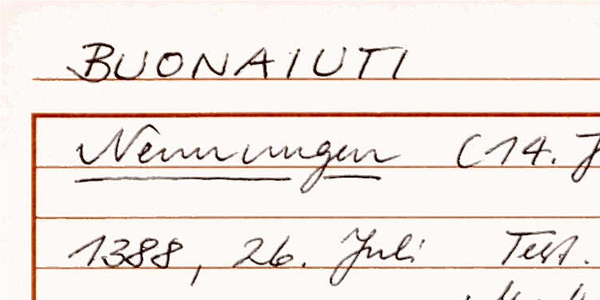 BUONAIUTI
Nennungen (14. J
1388, 26. Juli Test.